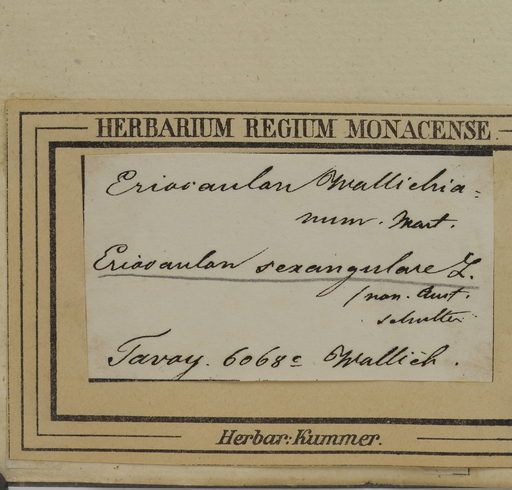 HERBARIUM REGIUM MONACENSE
Eriocaulon Wallichia=
num. Mart.
Eriocaulon sexangulare L.
(non. Aust.
schulter
Tavoy. 6068c Wallich.
Herbar: Kummer.